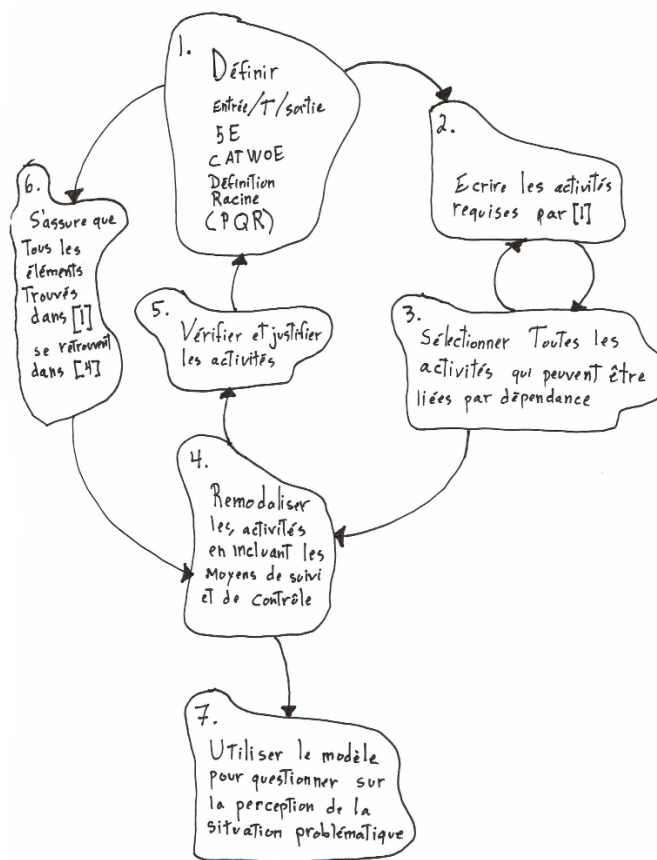 1.
Définir
Entrée/T/sortie
5E
CATWOE
Définition
Racine
(PQR)
2.
Ecrire les activités
requises par [1]
3.
Sélectionner Toutes les
activités qui peuvent être
liées par dépendance
4.
Remodaliser
les activités
en incluant les
Moyens de suivi
et de contrôle
5.
Vérifier et justifier
les activités
6.
S'assure que
Tous les
éléments
Trouvés
dans [1]
se retrouvent
dans [4]
7.
Utiliser le modèle
pour questionner sur
la perception de la
situation problématique